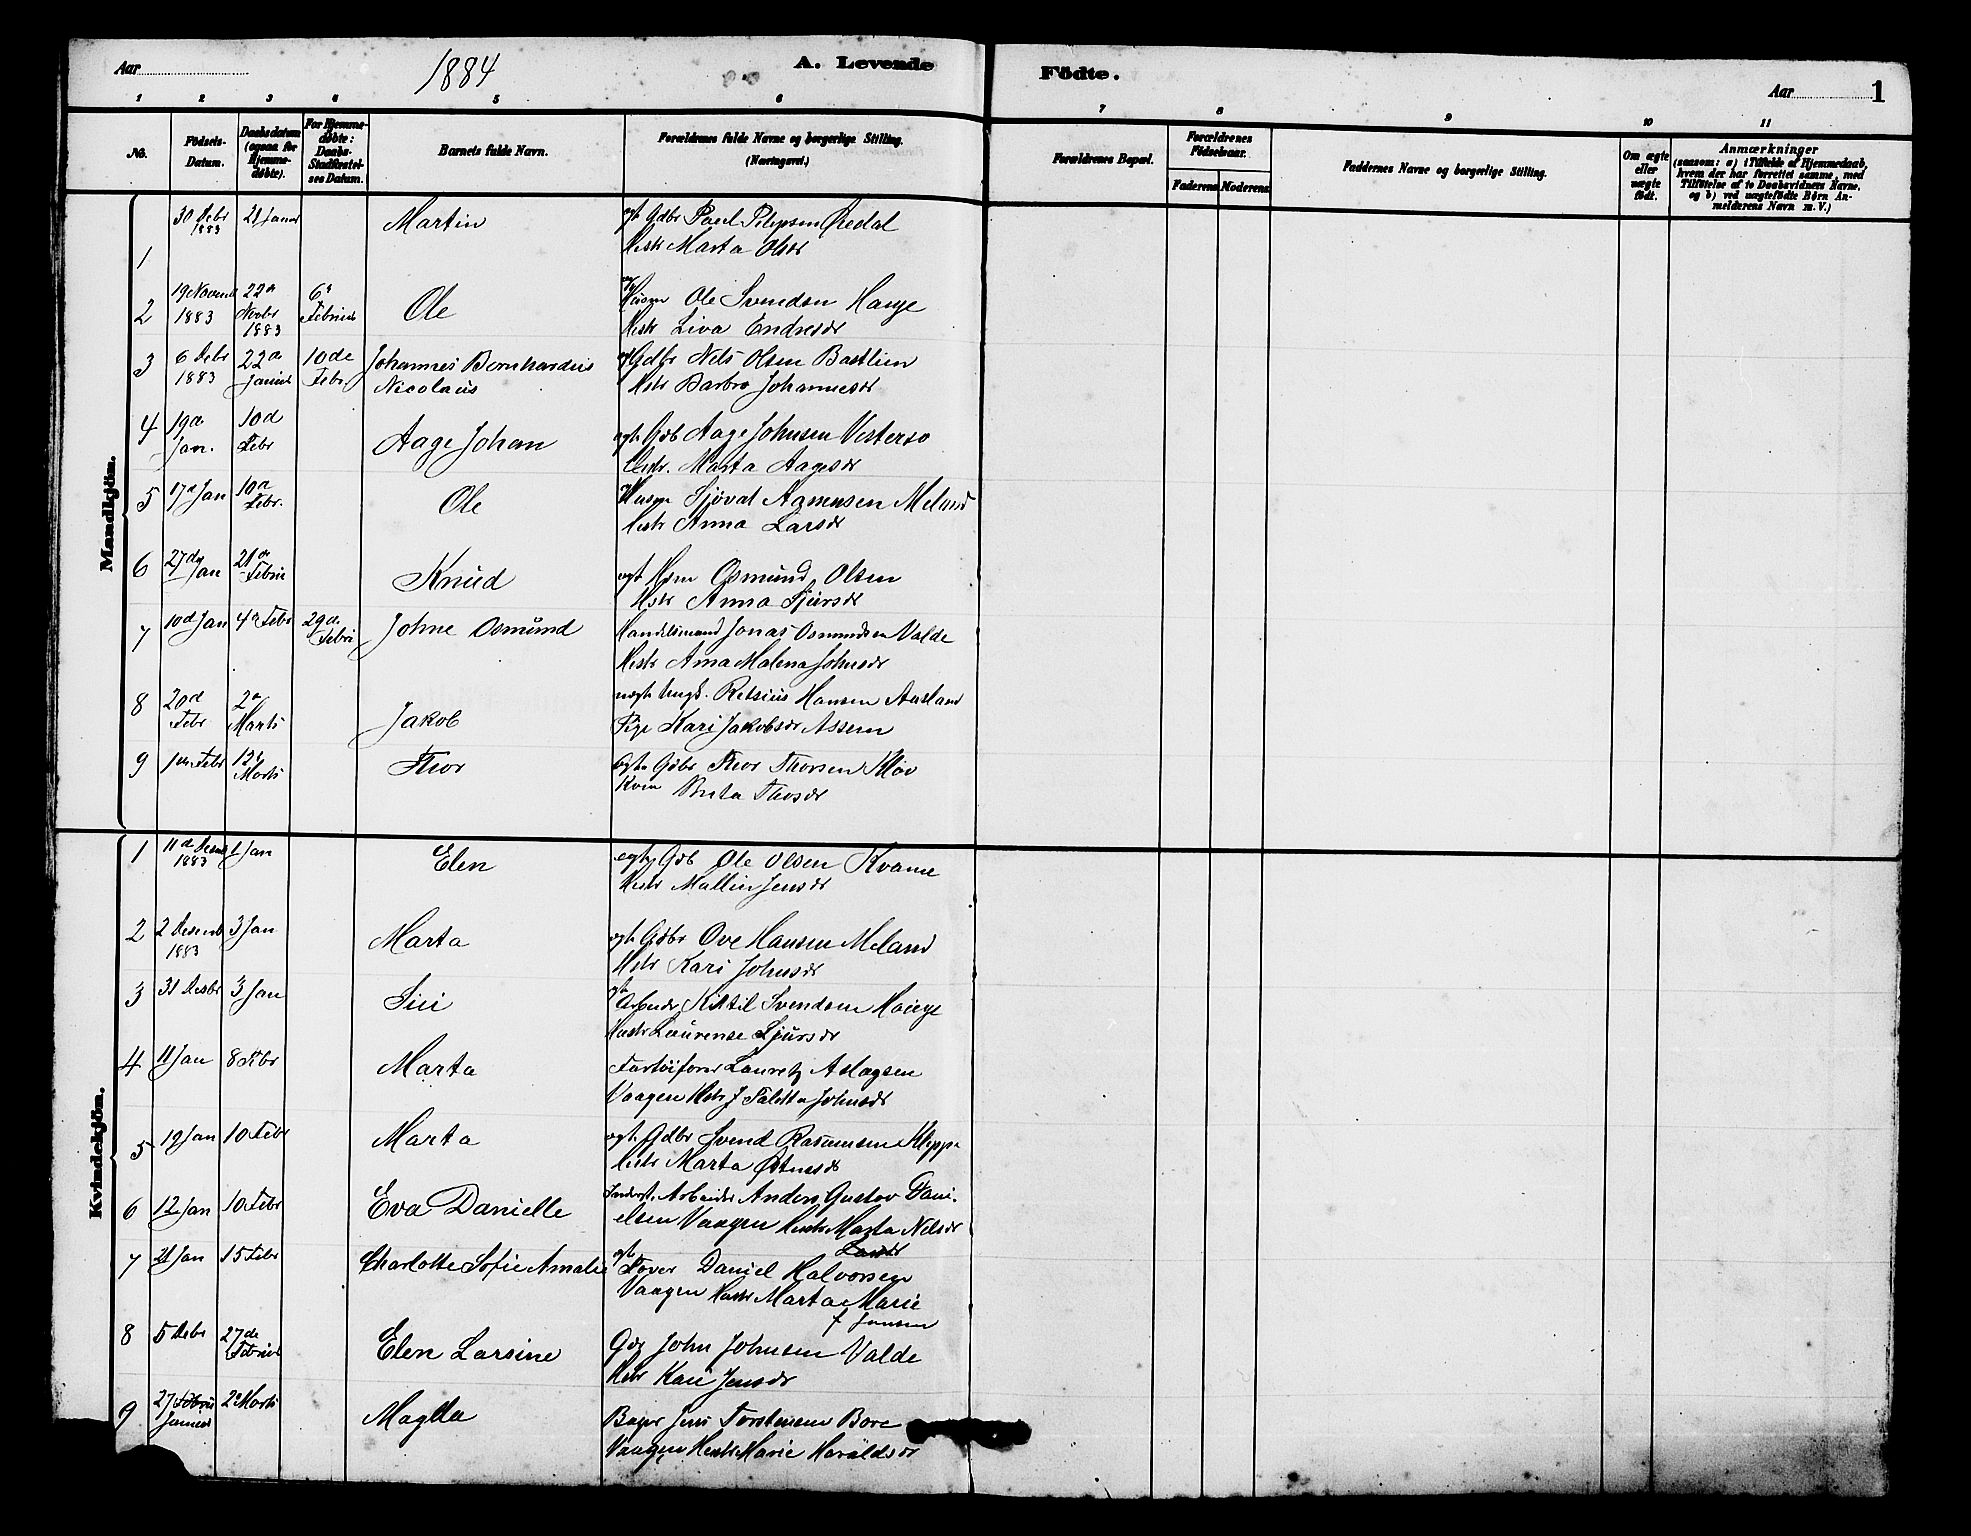 Aar 1884 A. Levende Födte. Aar 1
1 2 3 4 5 6 7 8 9 10 11
No. Födsels-Datum. Daabsdatum (ogsaa for Hjemmedøbte). For Hjemmedøbte: Daabs-Stadfæstelses Datum. Barnets fulde Navn. Forældrenes fulde Navne og borgerlige Stilling. (Næringsvei.) Forældrenes Bopæl. Forældrenes Födselsaar. Faderens Moderens Faddernes Navne og borgerlige Stilling. Om ægte eller uægte født. Anmærkninger (saasom: a) i Tilfælde af Hjemmedaab, hvem der har forrettet samme, med Tilføielse af to Daabsvidners Navne, og b) ved uægtefødte Børn Anmelderens Navn m. V.)
Mandkjön.
1 30 Debr 1883 21 Januar Martin Gdbr Paul Øredal
Hstr Marta Olsdr
2 19 Novemb 1883 22d Novbr 1883 6d Februar Ole Husm Ole Svendsen Hauge
Hstr Liva Endresdr
3 6 Debr 1883 22d Januar 10de Febr. Johannes Bernhardus Nicolaus Gdbr Nels Olsen Bastlien
Hstr Barbro Johannesdr
4 19d Jan. 10d Febr Aage Johan egt. Gdb Aage Johnsen Vestersø
Hstr. Marta Aagesdr
5 17d Jan 10d Febr. Ole Husm Sjøvat Asmusen Meland
Hstr Anna Larsdr
6 27de Jan 21d Febru Knud egt Hsm Osmund Olsen
Hstr Anna Sjursdr
7 10d Jan 4d Febr 29d Febr Johne Osmund Handelsmand Jonas Osmundsen Valde
Hstr Ana Malena Johnsdr
8 20d Febr 2d Marts Jakob uegt. Ungk. Retsius Hansen Aasland
Pige Kari Jakobsdr Assem
9 1d Febr 12d Marts Thor egte Gdbr Thor Thorsen Kløv
Kone Brita Thosdr
Kvindekjön.
1 11d Desmb 1883 1 Jan Elen egte Gdb Ole Olsen Kvame
Hstr Mallin Jensdr
2 2 Desemb 1883 3 Jan Marta egt. Gdbr Ove Hansen Meland
Hstr Kari Johnsdr
3 31 Desbr 3 Jan Siri egt Arbeider Kittil Svendsen Hauge
Hstr Laurense Sjursdr
4 11 Jan 8 Febr Marta Fartøifører Lauretz Aslagsen
Vaagen Hstr J Taletta Johnsdr
5 19 Jan 10 Febr Marta egt. Gdbr Svend Rasmusen Kleppe
Hstr Marta
6 12 Jan 10 Febr Eva Danielle Inderst. Arbeider Anders Gustav Dani-
elsen Vaagen Hstr Marta Nelsdr
7 21 Jan 15 Febr Charlotte Sofie Amalie egt Daniel Halvorsen
Vaagen Hstr Marta Marie
f Jansen
8 5 Debr 27de Februar Elen Larsine Gdb John Johnsen Valde
Hstr Kari Jensdr
9 27 Januar 2d Marts Magda Bager Jens Torstensen Bore
Vaagen Hstr Marie Haraldsdr